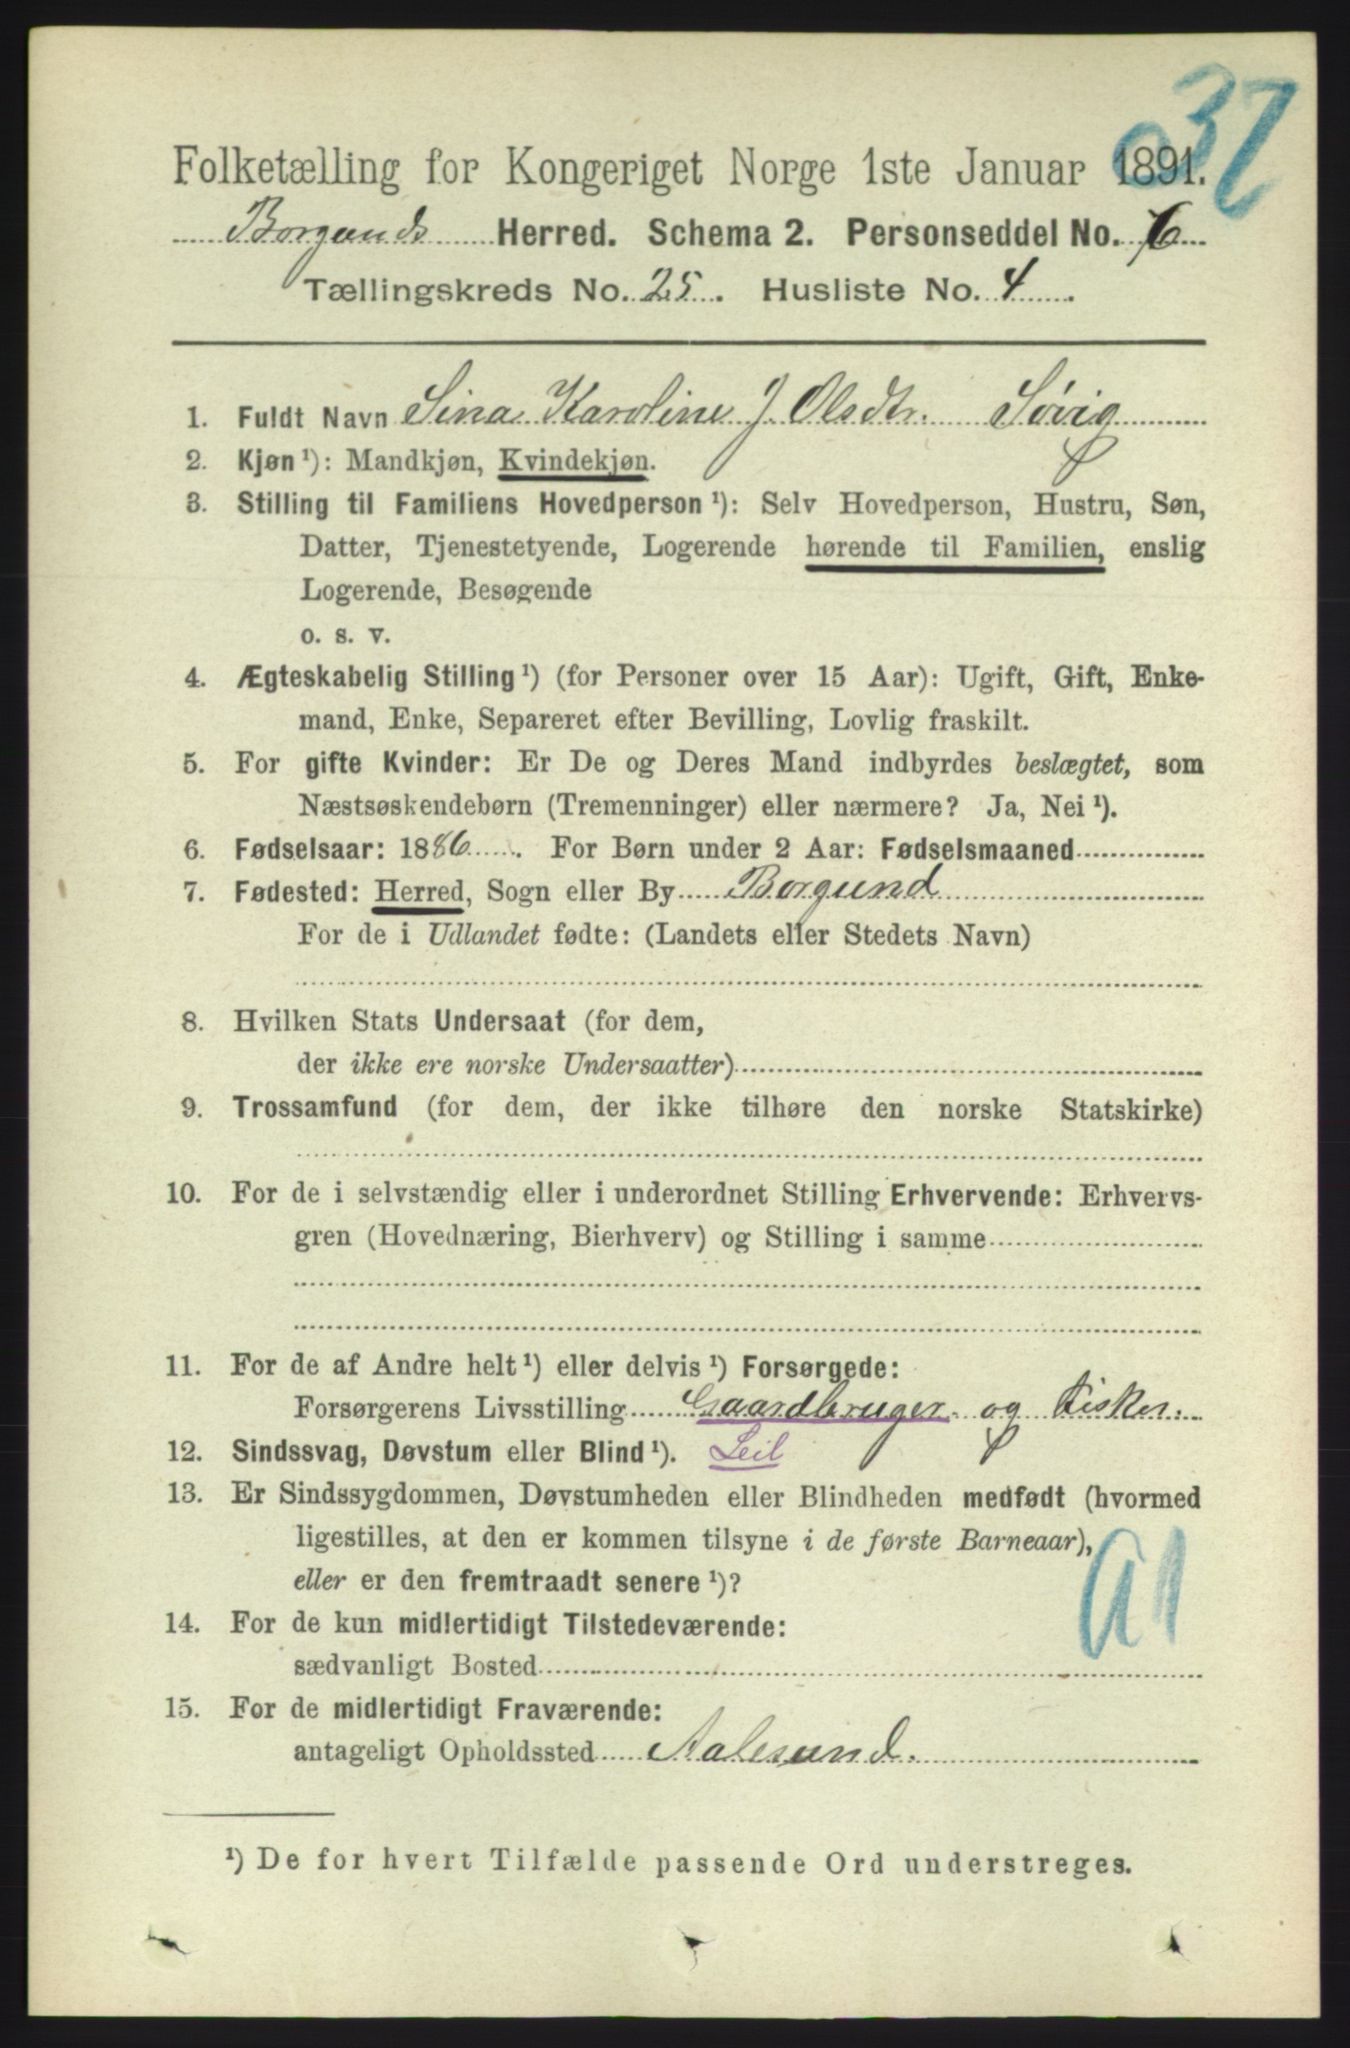 037
Folketælling for Kongeriget Norge 1ste Januar 1891.
Borgunds Herred. Schema 2. Personseddel No. 6
Tællingskreds No. 25. Husliste No. 4.
1. Fuldt Navn Sina Karoline J. Olsdtr. Søvig
2. Kjøn¹): Mandkjøn, Kvindekjøn.
3. Stilling til Familiens Hovedperson¹): Selv Hovedperson, Hustru, Søn,
Datter, Tjenestetyende, Logerende hørende til Familien, enslig
Logerende, Besøgende
o. s. v.
4. Ægteskabelig Stilling¹) (for Personer over 15 Aar): Ugift, Gift, Enke-
mand, Enke, Separeret efter Bevilling, Lovlig fraskilt.
5. For gifte Kvinder: Er De og Deres Mand indbyrdes beslægtet, som
Næstsøskendebørn (Tremenninger) eller nærmere? Ja, Nei¹).
6. Fødselsaar: 1886. For Børn under 2 Aar: Fødselsmaaned
7. Fødested: Herred, Sogn eller By Borgund
For de i Udlandet fødte: (Landets eller Stedets Navn)
8. Hvilken Stats Undersaat (for dem,
der ikke ere norske Undersaatter)
9. Trossamfund (for dem, der ikke tilhøre den norske Statskirke)
10. For de i selvstændig eller i underordnet Stilling Erhvervende: Erhvervs-
gren (Hovednæring, Bierhverv) og Stilling i samme
11. For de af Andre helt¹) eller delvis¹) Forsørgede:
Forsørgerens Livsstilling Gaardbruger og Fisker.
12. Sindssvag, Døvstum eller Blind¹). Leil
13. Er Sindssygdommen, Døvstumheden eller Blindheden medfødt (hvormed
ligestilles, at den er kommen tilsyne i de første Barneaar),
eller er den fremtraadt senere¹)?
a1
14. For de kun midlertidigt Tilstedeværende:
sædvanligt Bosted
15. For de midlertidigt Fraværende:
antageligt Opholdssted Aalesund.
¹) De for hvert Tilfælde passende Ord understreges.